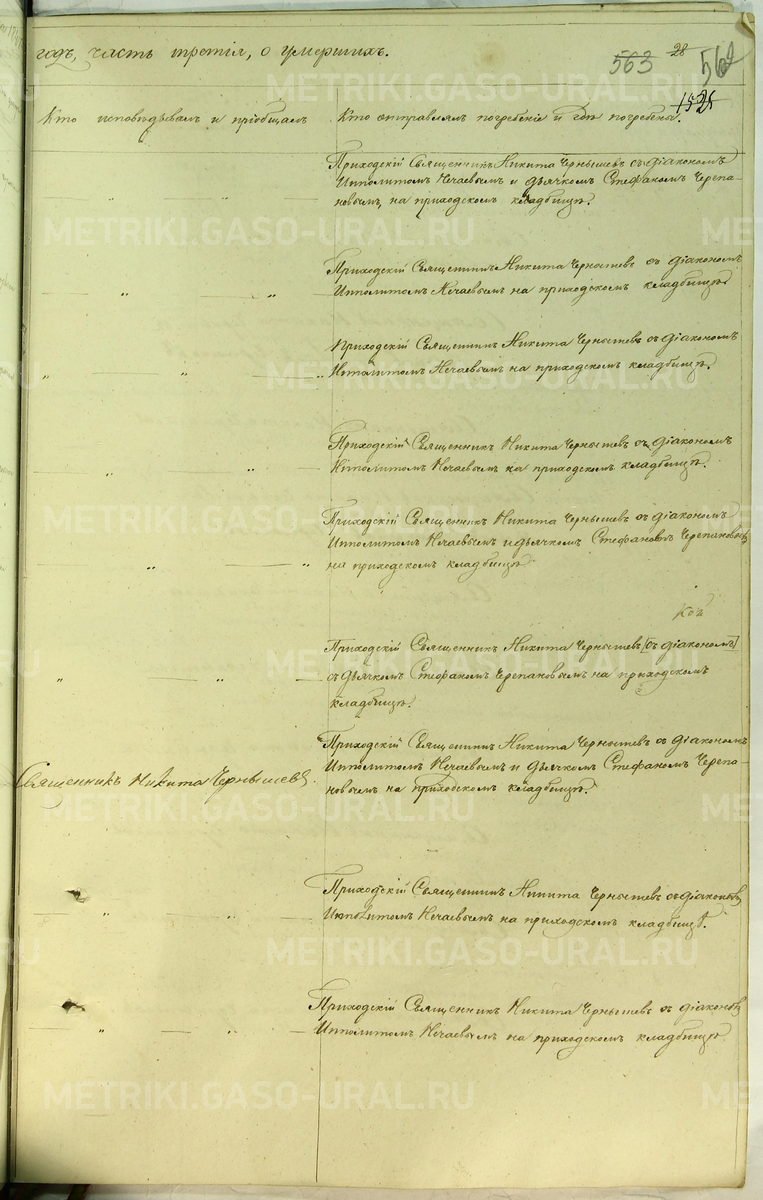 годъ, часть третія, о умершихъ.
563 28 562
1528
Кто исповѣдывалъ и пріобщалъ
Кто отправлялъ погребеніе и гдѣ погребены.
Приходскій Священникъ Никита Чернышевъ съ діакономъ
Ипполитомъ Нечаевымъ и дьячкомъ Стефаномъ Черепа-
новымъ, на приходскомъ кладбищѣ.
Приходскій Священникъ Никита Чернышевъ съ діакономъ
Ипполитомъ Нечаевымъ на приходскомъ кладбищѣ
Приходскій Священникъ Никита Чернышевъ съ діакономъ
Ипполитомъ Нечаевымъ на приходскомъ кладбищѣ.
Приходскій Священникъ Никита Чернышевъ съ діакономъ
Ипполитомъ Нечаевымъ на приходскомъ кладбищѣ.
Приходскій Священникъ Никита Чернышевъ съ діакономъ
Ипполитомъ Нечаевымъ и дьячкомъ Стефаномъ Черепановымъ
на приходскомъ кладбищѣ
Приходскій Священникъ Никита Чернышевъ [съ діакономъ]
съ дьячкомъ Стефаномъ Черепановымъ на приходскомъ
кладбищѣ.
Священникъ Никита Чернышевъ.
Приходскій Священникъ Никита Чернышевъ съ діакономъ
Ипполитомъ Нечаевымъ и дьячкомъ Стефаномъ Черепа-
новымъ на приходскомъ кладбищѣ.
Приходскій Священникъ Никита Чернышевъ съ діакономъ
Ипполитомъ Нечаевымъ на приходскомъ кладбищѣ.
Приходскій Священникъ Никита Чернышевъ съ діакономъ
Ипполитомъ Нечаевымъ на приходскомъ кладбищѣ
METRIKI.GASO-URAL.RU